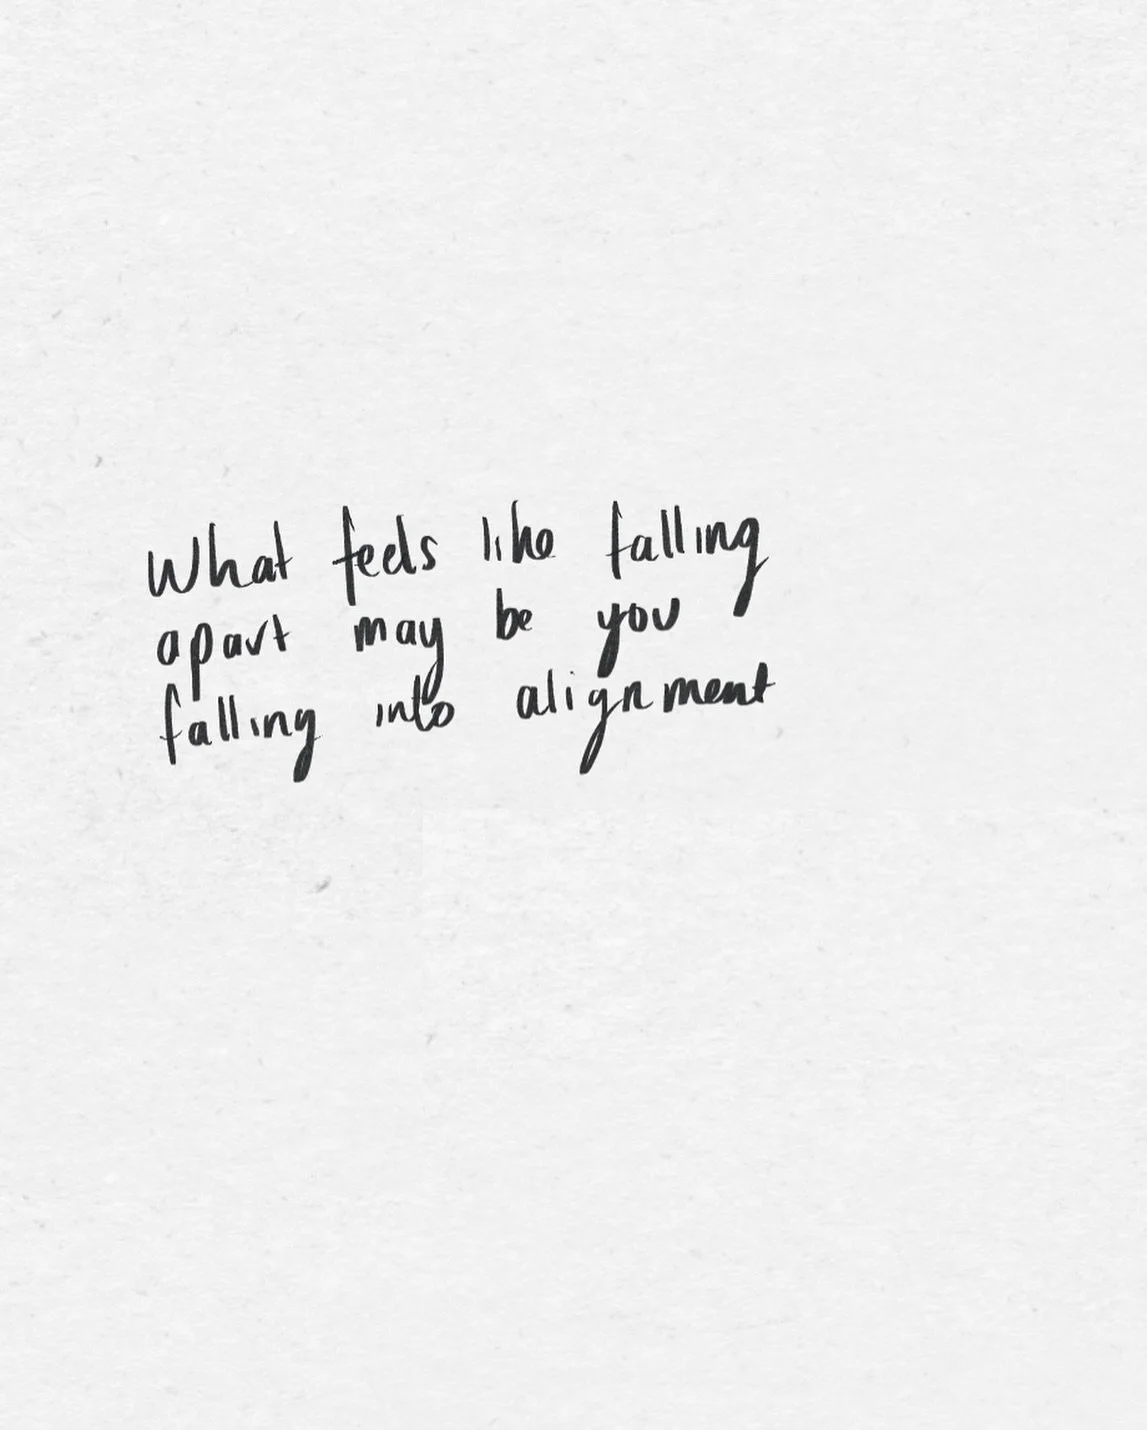 What feels like falling
apart may be you
falling into alignment